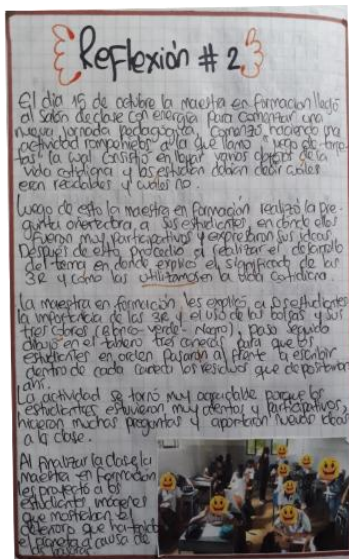 Reflexión # 2
El día 15 de octubre la maestra en formación llegó
al salón de clase con energía para comenzar una
nueva jornada pedagógica, comenzó haciendo una
actividad rompehielos aula que llamo "juego de tarje-
tas" la cual consistió en llevar varios objetos de la
vida cotidiana y los estudian debian decir cuales
eran reciclables y cuales no.
Luego de esto la maestra en formación realizó la pre-
gunta orientadora, a sus estudiantes, en donde ellos
fueron muy participativos y expresaron sus ideas.
Después de esto procedio a realizar el desarrollo
del tema en donde explicó el significado de las
3R y como las utilizamos en la vida cotidiana.
la maestra en formación les explicó a los estudiantes
la importancia de las 3R y el uso de las bolsas y sus
tres colores (Blanco-verde-Negro), paso seguido
dibujó en el tablero tres canecas para que los
estudiantes en orden pasaran al frente a escribir
dentro de cada caneca los residuos que depositarian
ahi.
La actividad se tornó muy agradable porque los
estudiantes estuvieron muy atentos y participativos,
hicieron muchas preguntas y aportaron nuevas ideas
a la clase.
Al finalizar la clase la
maestra en formación
les proyectó a los
estudiantes imágenes
que mostraban el
deterioro que ha tenido
el planeta a causa de